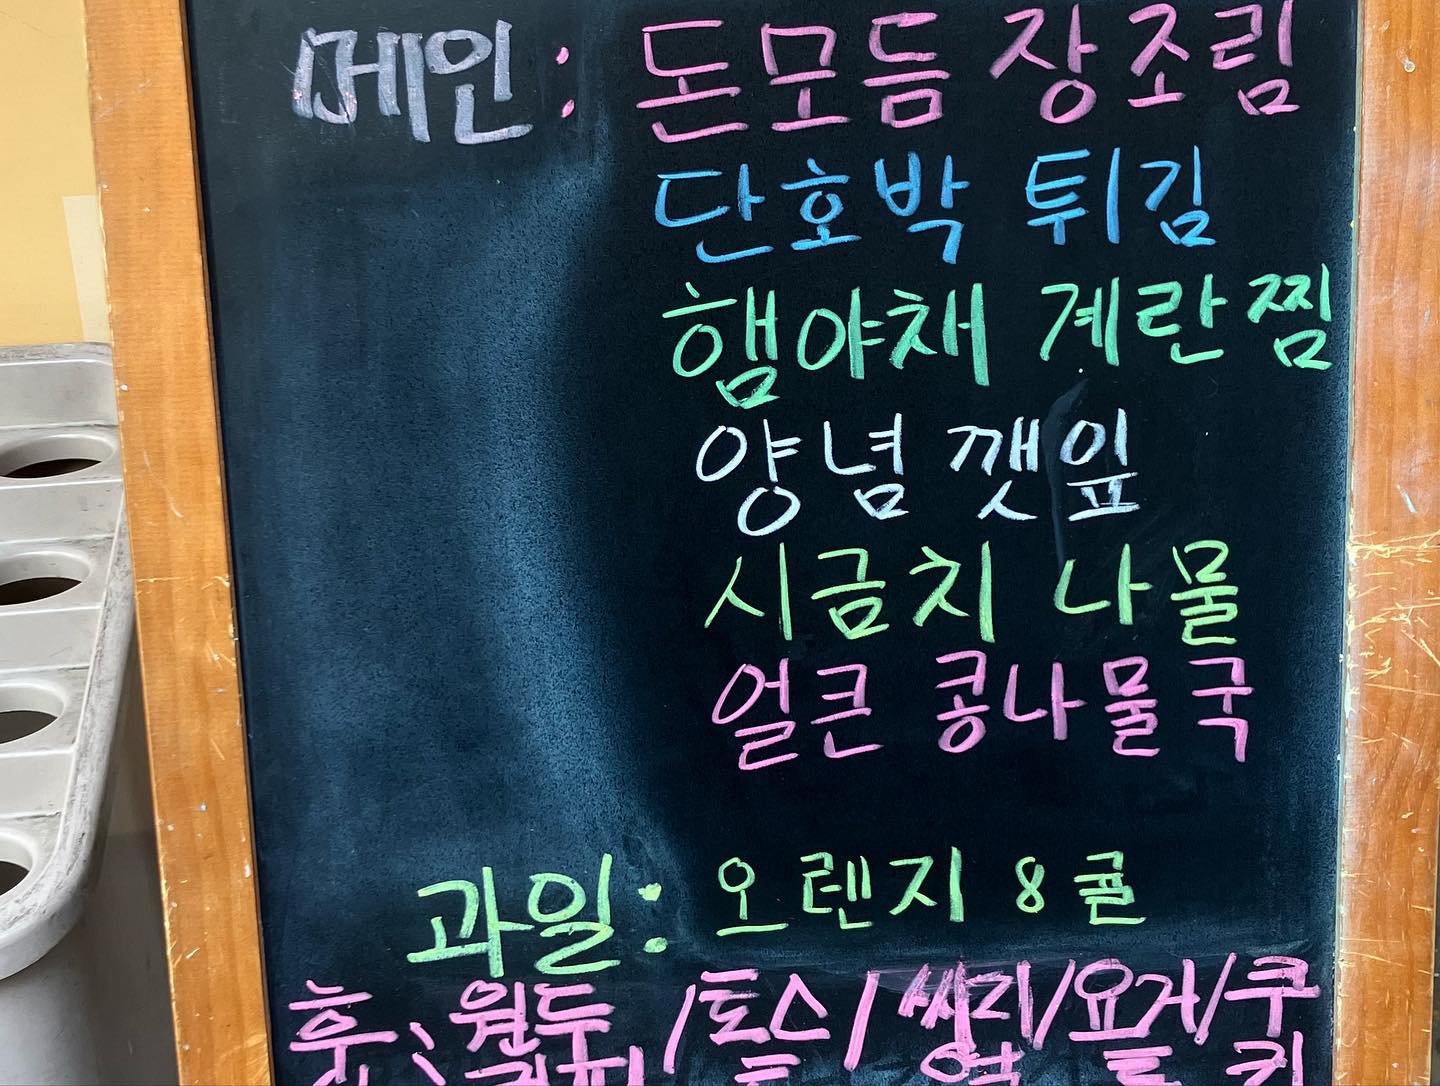 메인: 돈모듬 장조림
단호박 튀김
햄야채 계란찜
양념 깻잎
시금치 나물
얼큰 콩나물국
과일: 오렌지 8쿨
후: 원두/토스/씨리/요거/쿠